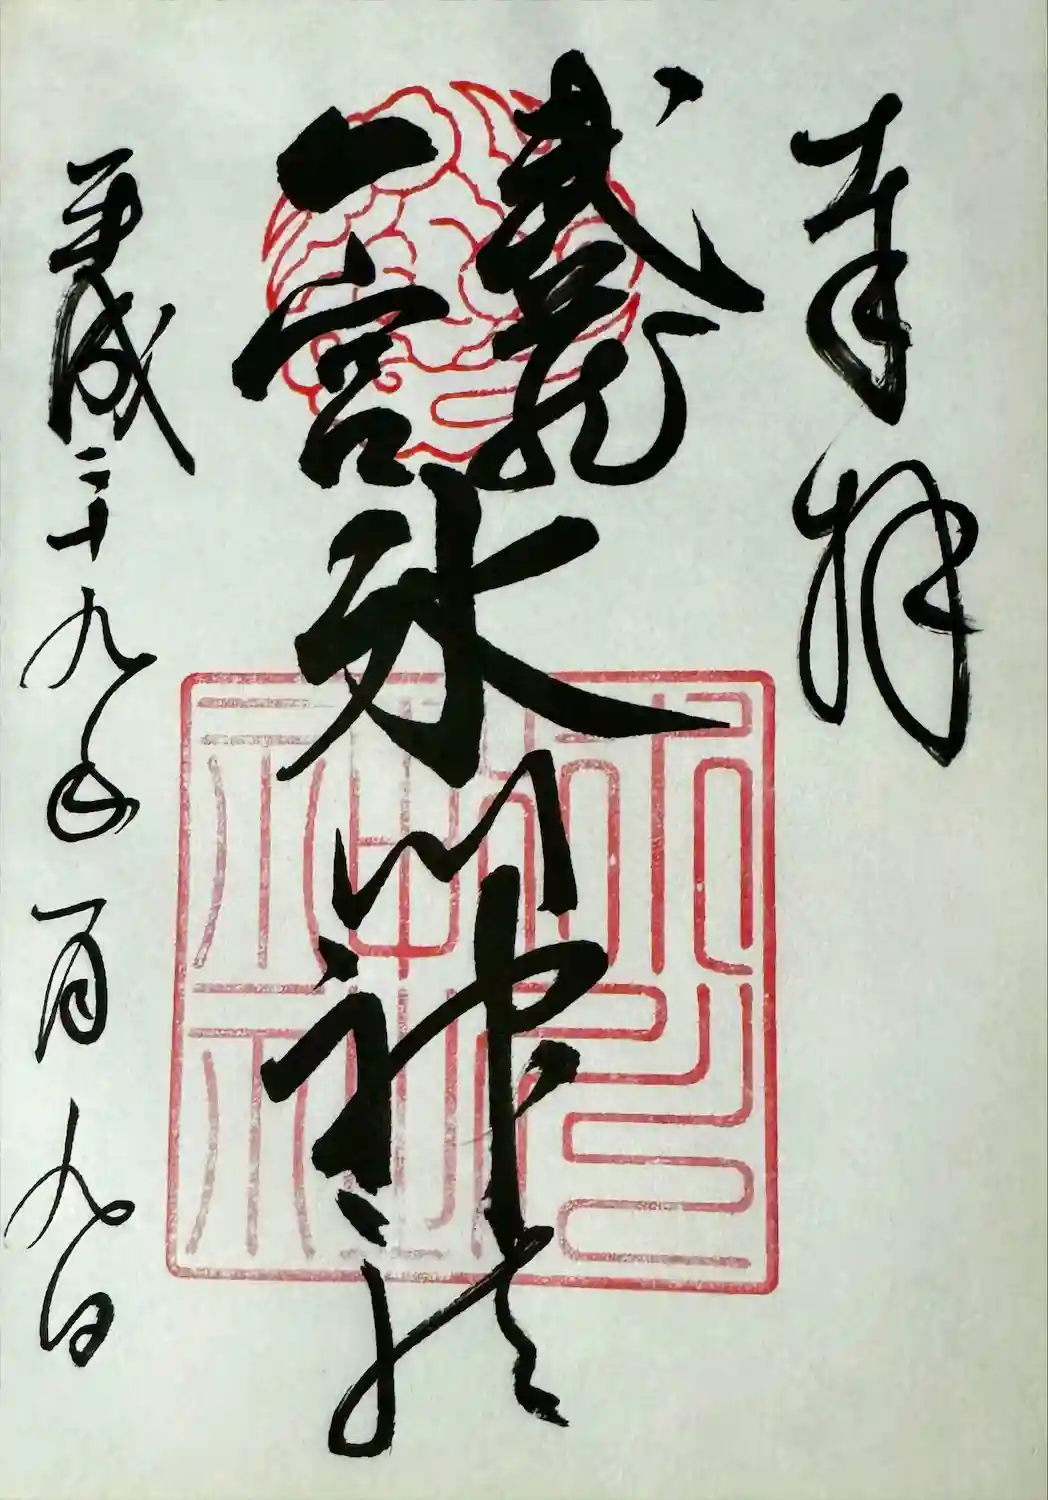 奉拝
武蔵
一宮
氷川神社
平成二十九年一月九日